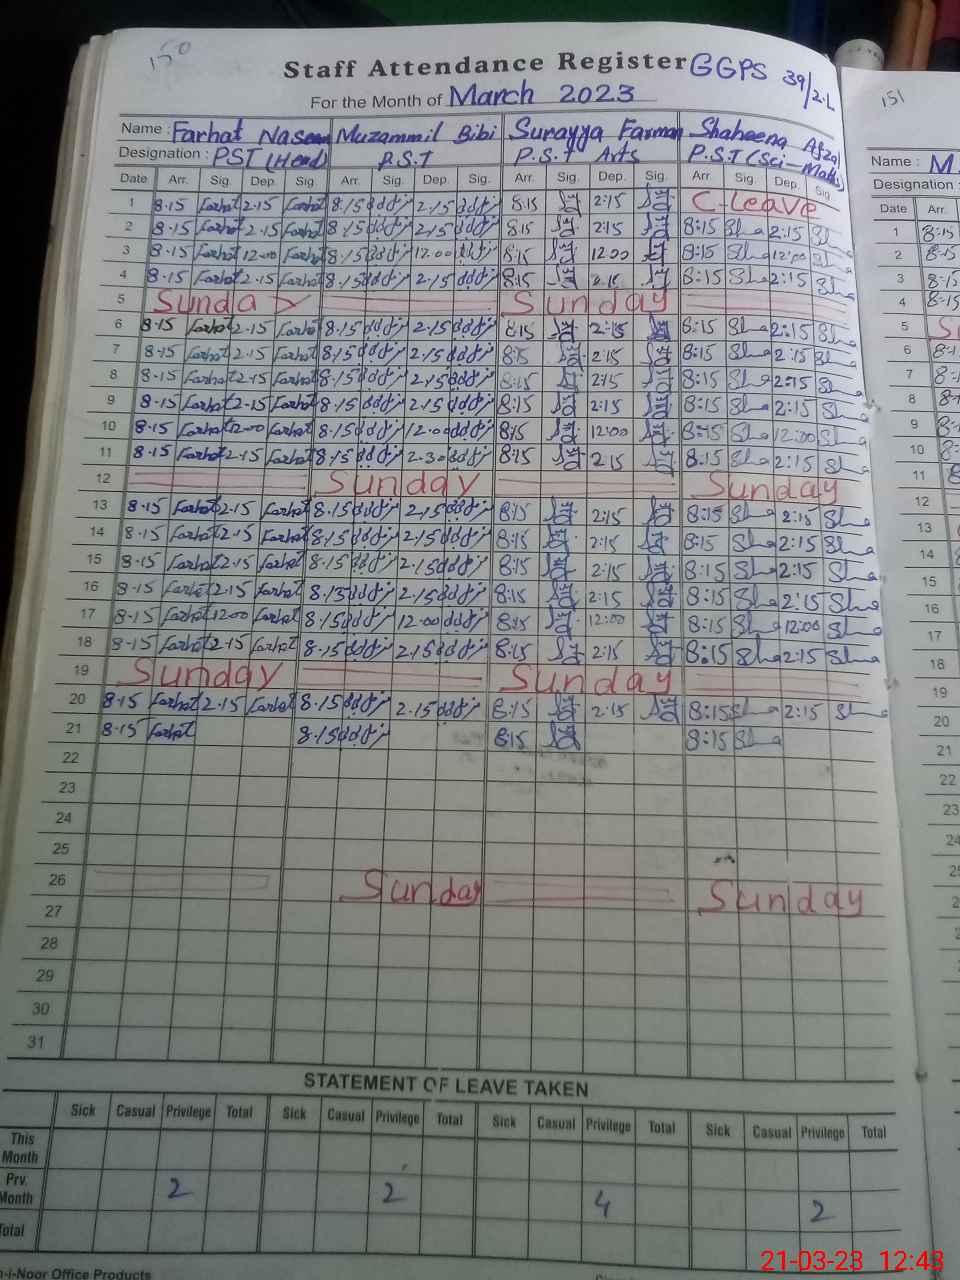 150
Staff Attendance Register GGPS 39/2.L
For the Month of March 2023
Name : Farhat Naseem Muzammil Bibi Surayya Farman Shaheena Afzal
Designation : PST (Head) P.S.T P.S.T Arts P.S.T (Sci-Math)
Date Arr. Sig. Dep. Sig. Arr. Sig. Dep. Sig. Arr. Sig. Dep. Sig. Arr. Sig. Dep. Sig
1 8.15 Farhat 2.15 Farhat 8.15 2.15 8:15 2:15 C-Leave
2 8.15 Farhat 2.15 Farhat 8.15 2.15 8:15 2:15 8:15 Sha 2:15 Sha
3 8.15 Farhat 12.00 Farhat 8.15 12.00 8:15 12:00 8:15 Sha 12:00 Sha
4 8.15 Farhat 2.15 Farhat 8.15 2.15 8:15 2.15 8:15 Sha 2:15 Sha
5 Sunday Sunday
6 8.15 Farhat 2.15 Farhat 8.15 2.15 8:15 2:15 8:15 Sha 2:15 Sha
7 8.15 Farhat 2.15 Farhat 8.15 2.15 8:15 2:15 8:15 Sha 2:15 Sha
8 8.15 Farhat 2.15 Farhat 8.15 2.15 8:15 2:15 8:15 Sha 2:15 Sha
9 8.15 Farhat 2.15 Farhat 8.15 2.15 8:15 2:15 8:15 Sha 2:15 Sha
10 8.15 Farhat 12.00 Farhat 8.15 12.00 8:15 12:00 8:15 Sha 12:00 Sha
11 8.15 Farhat 2.15 Farhat 8.15 2.30 8:15 2:15 8.15 Sha 2:15 Sha
12 Sunday Sunday
13 8.15 Farhat 2.15 Farhat 8.15 2.15 8:15 2:15 8:15 Sha 2:15 Sha
14 8.15 Farhat 2.15 Farhat 8.15 2.15 8:15 2:15 8:15 Sha 2:15 Sha
15 8.15 Farhat 2.15 Farhat 8.15 2.15 8:15 2:15 8:15 Sha 2:15 Sha
16 8.15 Farhat 2.15 Farhat 8.15 2.15 8:15 2:15 8:15 Sha 2:15 Sha
17 8.15 Farhat 12.00 Farhat 8.15 12.00 8:15 12:00 8:15 Sha 12:00 Sha
18 8.15 Farhat 2.15 Farhat 8.15 2.15 8:15 2:15 8:15 Sha 2:15 Sha
19 Sunday Sunday
20 8.15 Farhat 2.15 Farhat 8.15 2.15 8:15 2:15 8:15 Sha 2:15 Sha
21 8.15 Farhat 8.15 8:15 8:15 Sha
22
23
24
25
26 Sunday Sunday
27
28
29
30
31
STATEMENT OF LEAVE TAKEN
Sick Casual Privilege Total Sick Casual Privilege Total Sick Casual Privilege Total Sick Casual Privilege Total
This Month
Prv. Month 2 2 4 2
Total
-i-Noor Office Products
151
Name : M
Designation :
Date Arr.
1 8:15
2 8:15
3 8:15
4 8:15
5
6
7
8
9
10
11
12
13
14
15
16
17
18
19
20
21
22
23
24
21-03-23 12:43